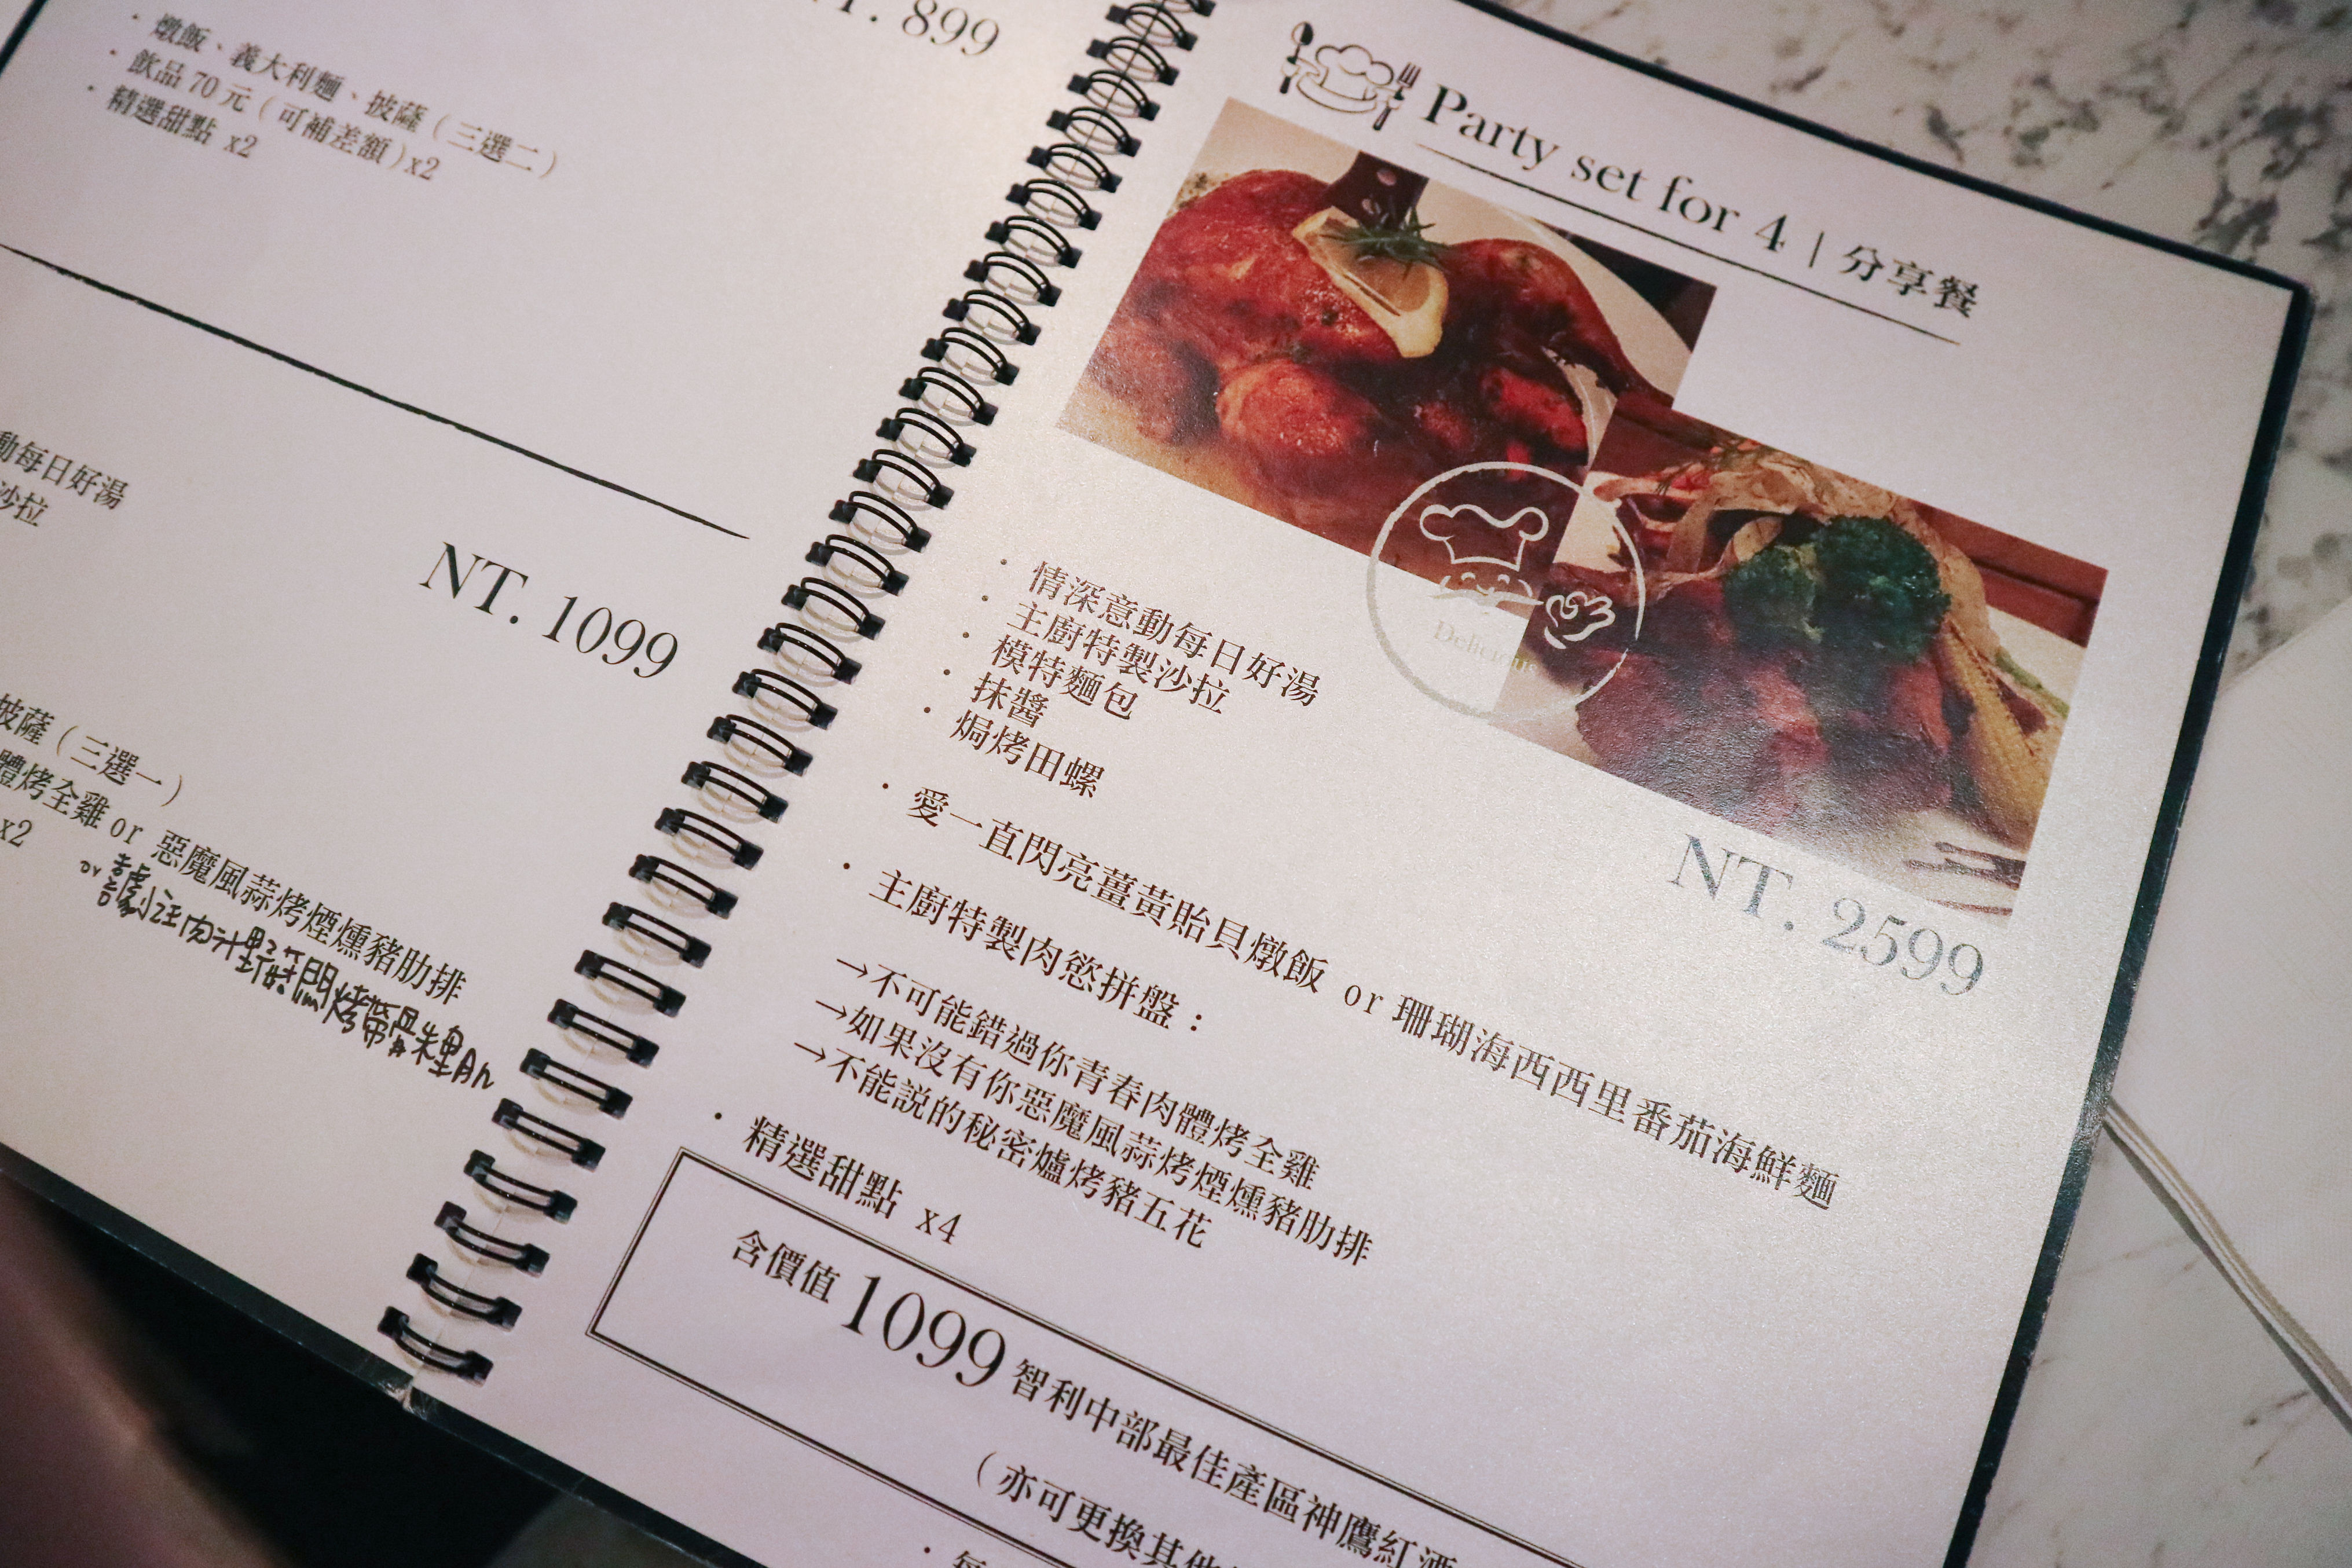 NT. 899
· 燉飯、義大利麵、披薩(三選二)
· 飲品 70 元(可補差額)x2
· 精選甜點 x2
動每日好湯
沙拉
NT. 1099
披薩(三選一)
體烤全雞 or 惡魔風蒜烤煙燻豬肋排
x2
or
Party set for 4 | 分享餐
Delicious
NT. 2599
· 情深意動每日好湯
· 主廚特製沙拉
· 模特麵包
· 抹醬
· 焗烤田螺
· 愛一直閃亮薑黃貽貝燉飯 or 珊瑚海西西里番茄海鮮麵
· 主廚特製肉慾拼盤：
→不可能錯過你青春肉體烤全雞
→如果沒有你惡魔風蒜烤煙燻豬肋排
→不能說的秘密爐烤豬五花
· 精選甜點 x4
含價值 1099 智利中部最佳產區神鷹紅酒
(亦可更換其他